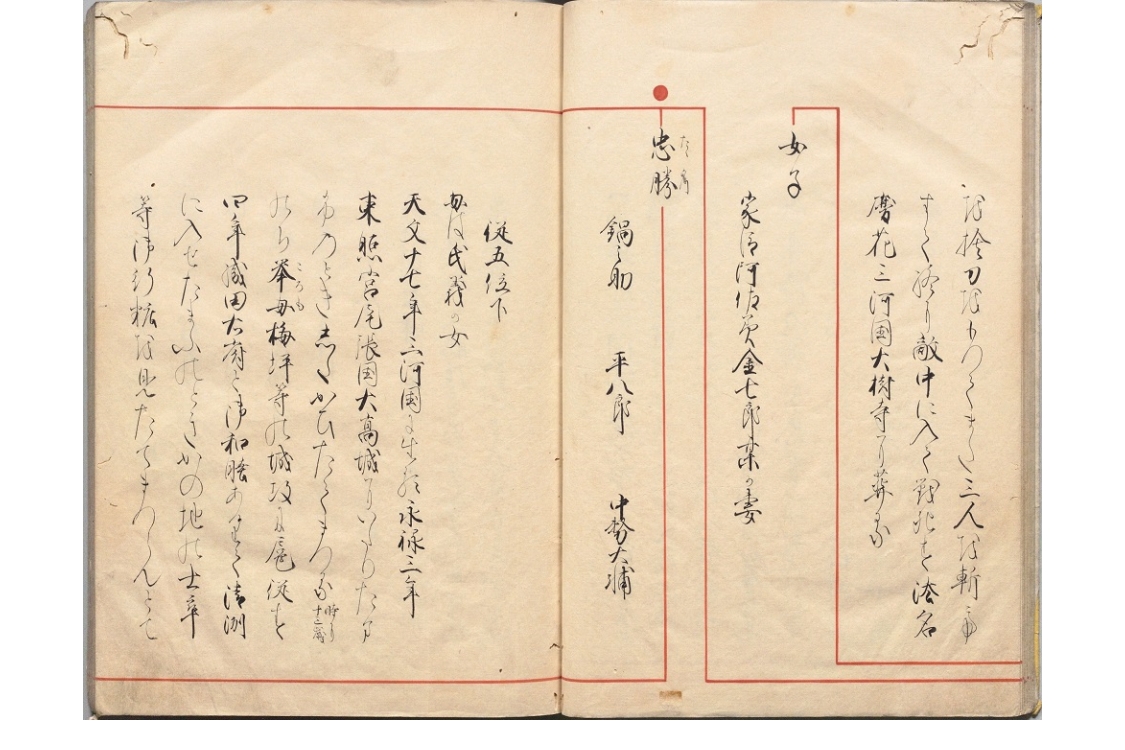 を捨刀をもつてまた三人を斬
すへて終り敵中に入て戦死す法名
花三河国大樹寺に葬る
女子
家臣河佐美金七郎某の妻
忠勝
鍋之助 平八郎 中務大輔
従五位下
母は氏義の女
天文十七年三河国に生る永禄三年
東照宮尾張国大高城にいたりたま
ふのときしたかひたてまつる 時に十三歳
のち挙母梅坪等の城攻に扈従す
四年織田右府と御和睦ありて清洲
に入せたまふのときかの地の士卒
等御行粧を見たてまつらんとて